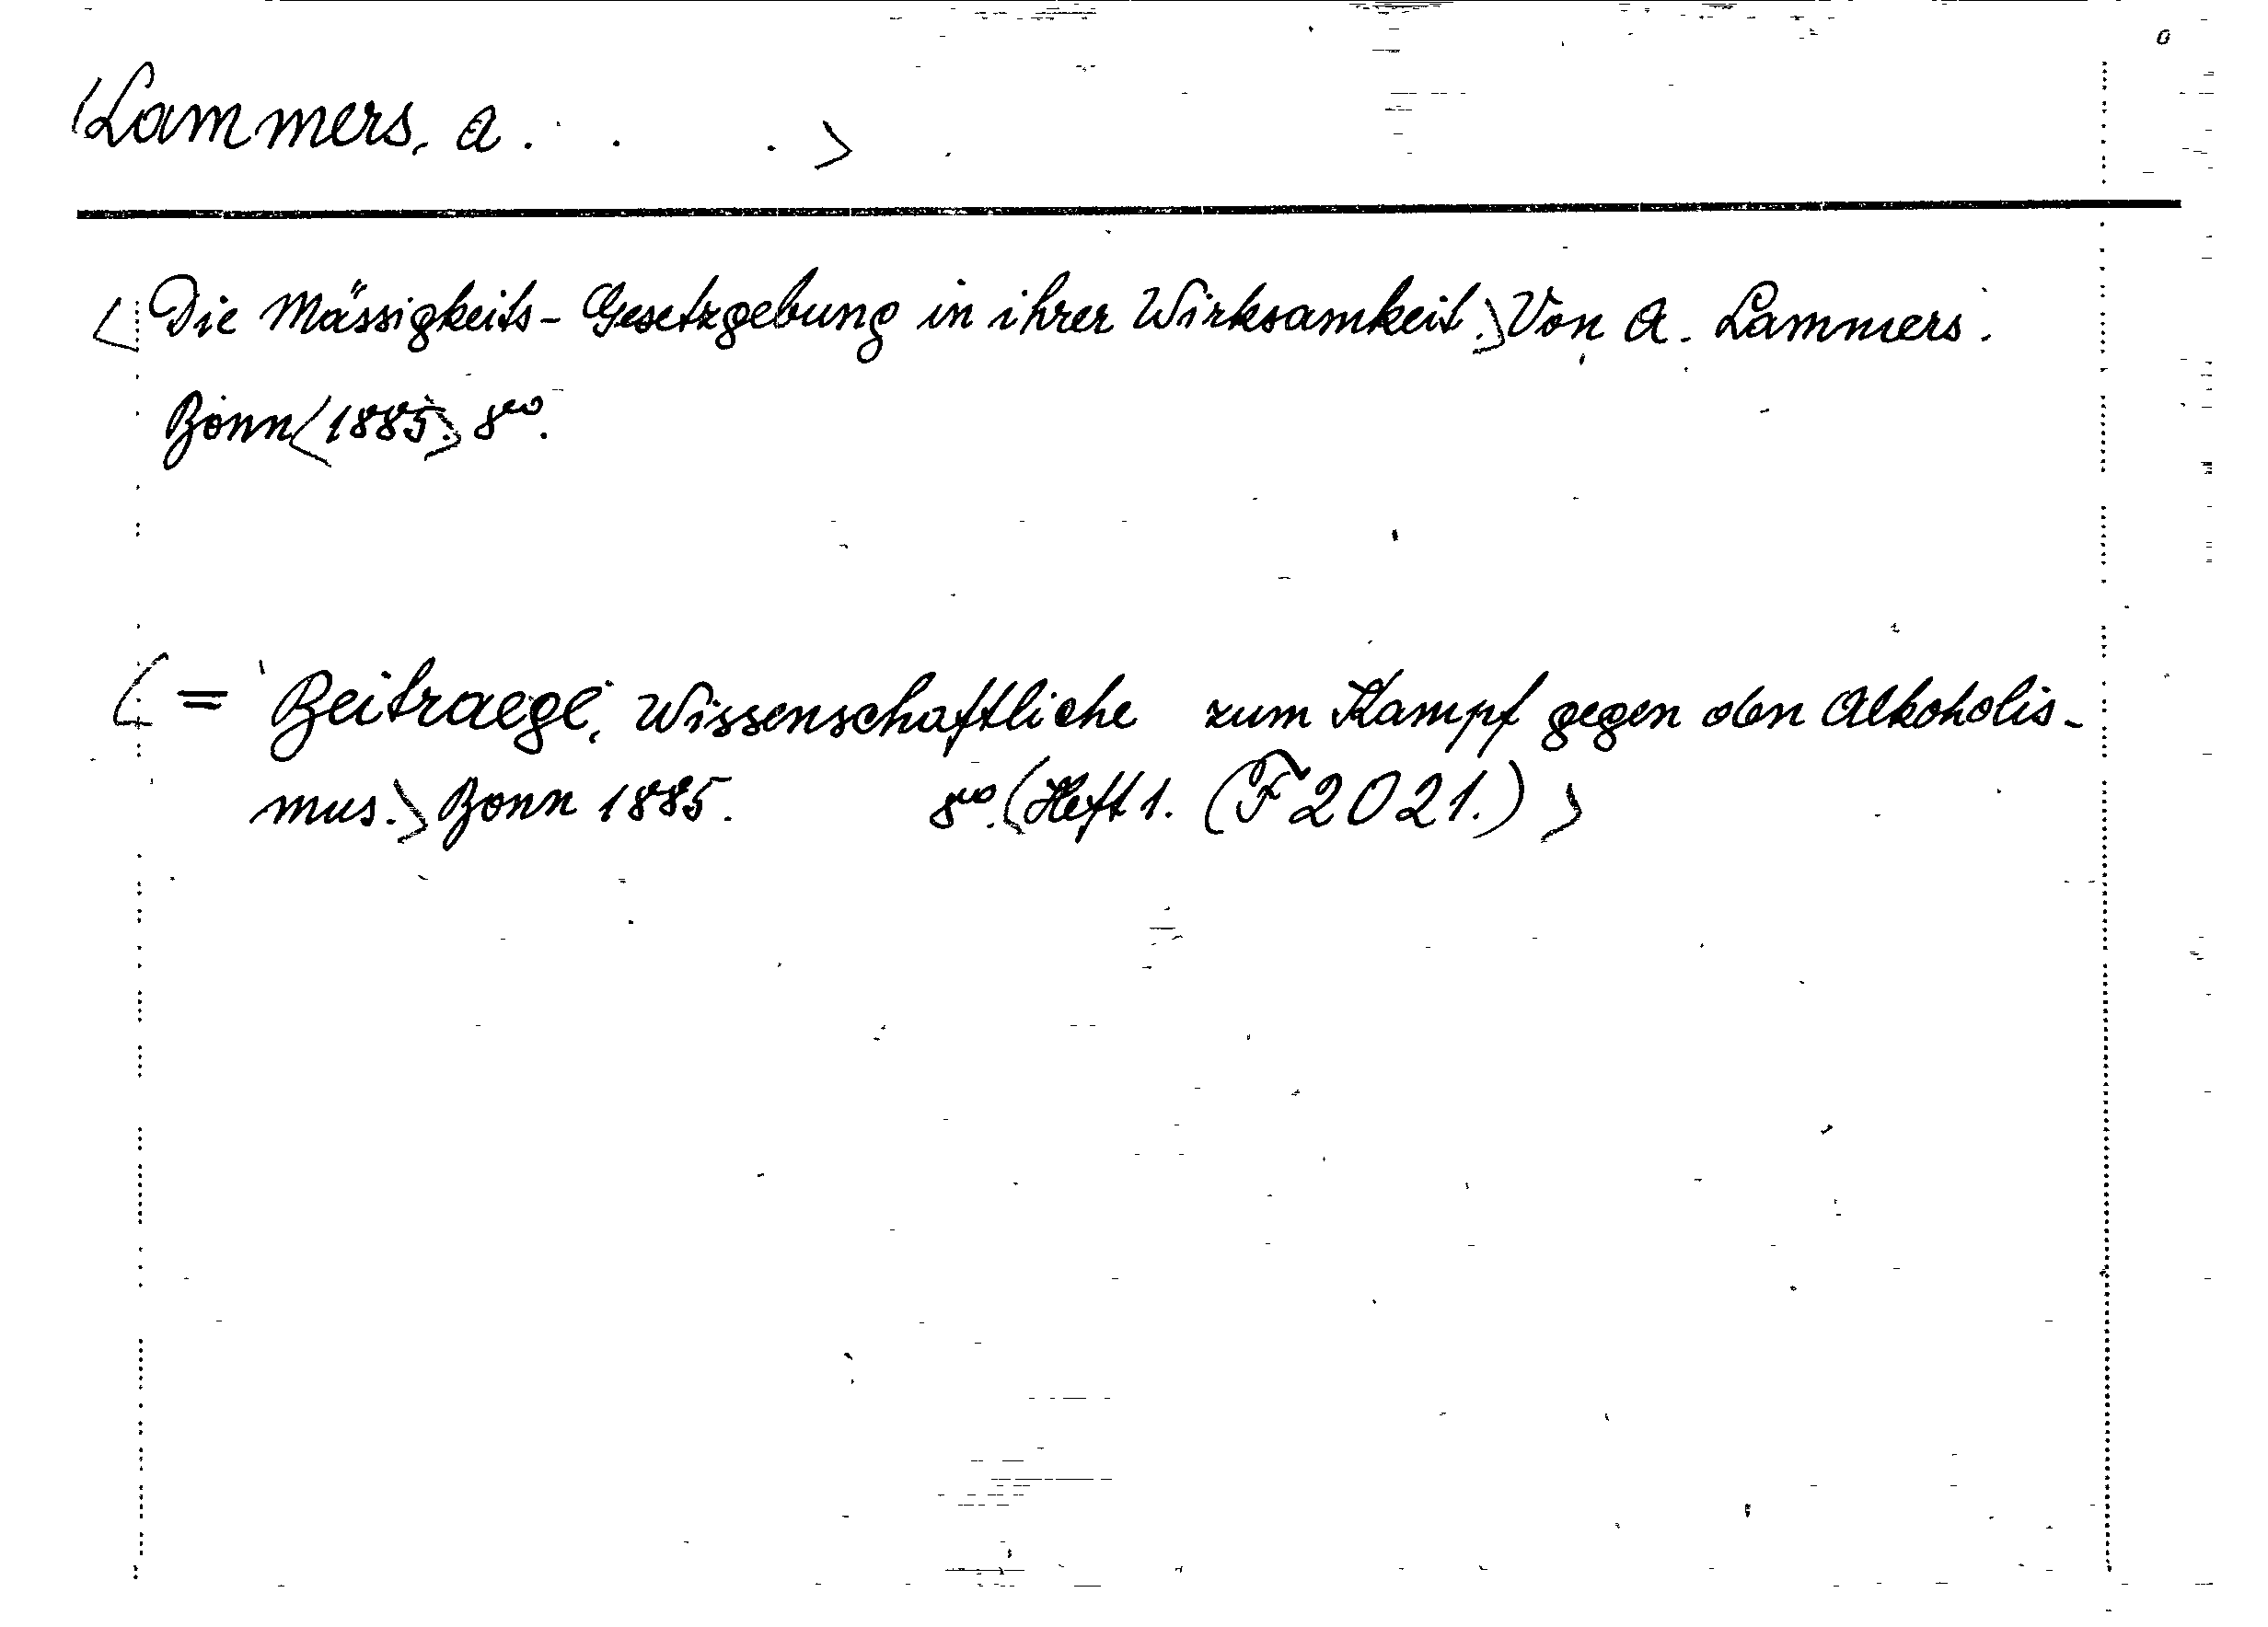 <Lammers, A. . . >
<Die Mässigkeits-Gesetzgebung in ihrer Wirksamkeit.> Von A. Lammers.
Bonn <1885.> 8vo.
<= Beitraege, Wissenschaftliche zum Kampf gegen den Alkoholis-
mus.> Bonn 1885. 8vo. <Heft 1. (F 2021.)>